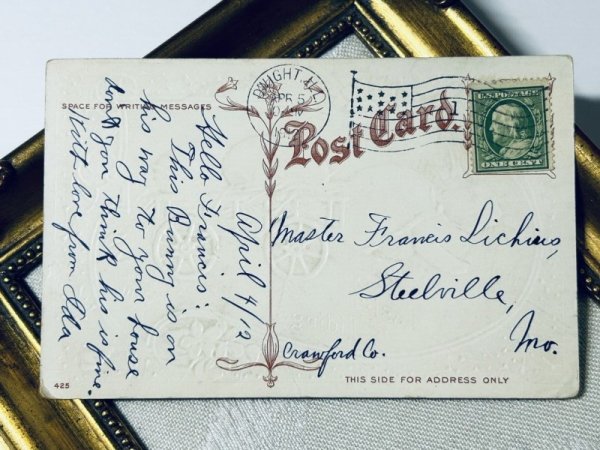 SPACE FOR WRITING MESSAGES
Post Card.
DWIGHT
APR 5
U.S. POSTAGE
ONE CENT
April 4/12
Hello Francis:
This Bunny is on
his way to your house
dont you think his is fine.
With love from Ida
Master Francis Lichius,
Steelville,
Mo.
Crawford Co.
425
THIS SIDE FOR ADDRESS ONLY